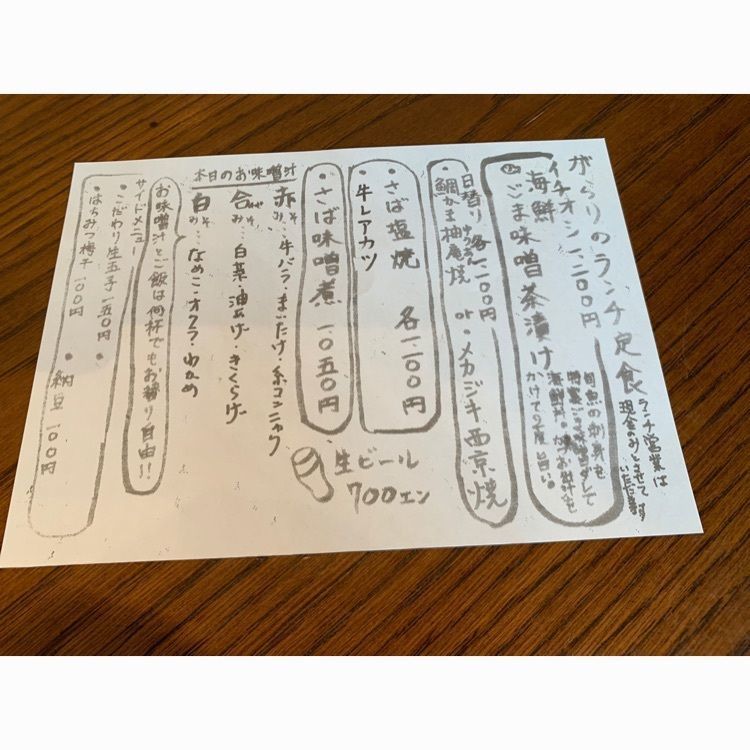 がらりのランチ定食
ランチ営業は
現金のみとさせて
いただきます
イチオシ 一、二〇〇円
海鮮ごま味噌茶漬け
旬魚の刺身を
特製ごま味噌ダレで
海鮮丼。〆はお出汁を
かけて2度旨い。
日替り 各一、一〇〇円
鯛カマ柚庵焼 or・メカジキ西京焼
・さば塩焼 各一、一〇〇円
・牛レアカツ
・さば味噌煮 一〇五〇円
生ビール
700エン
本日のお味噌汁
赤みそ…牛バラ・まいたけ・糸コンニャク
合わせみそ…白菜・油あげ・きくらげ
白みそ…なめこ・オクラ・わかめ
お味噌汁とご飯は何杯でもお替り自由!!
サイドメニュー
・こだわり生玉子 一五〇円
・はちみつ梅干 一〇〇円
・納豆 一〇〇円